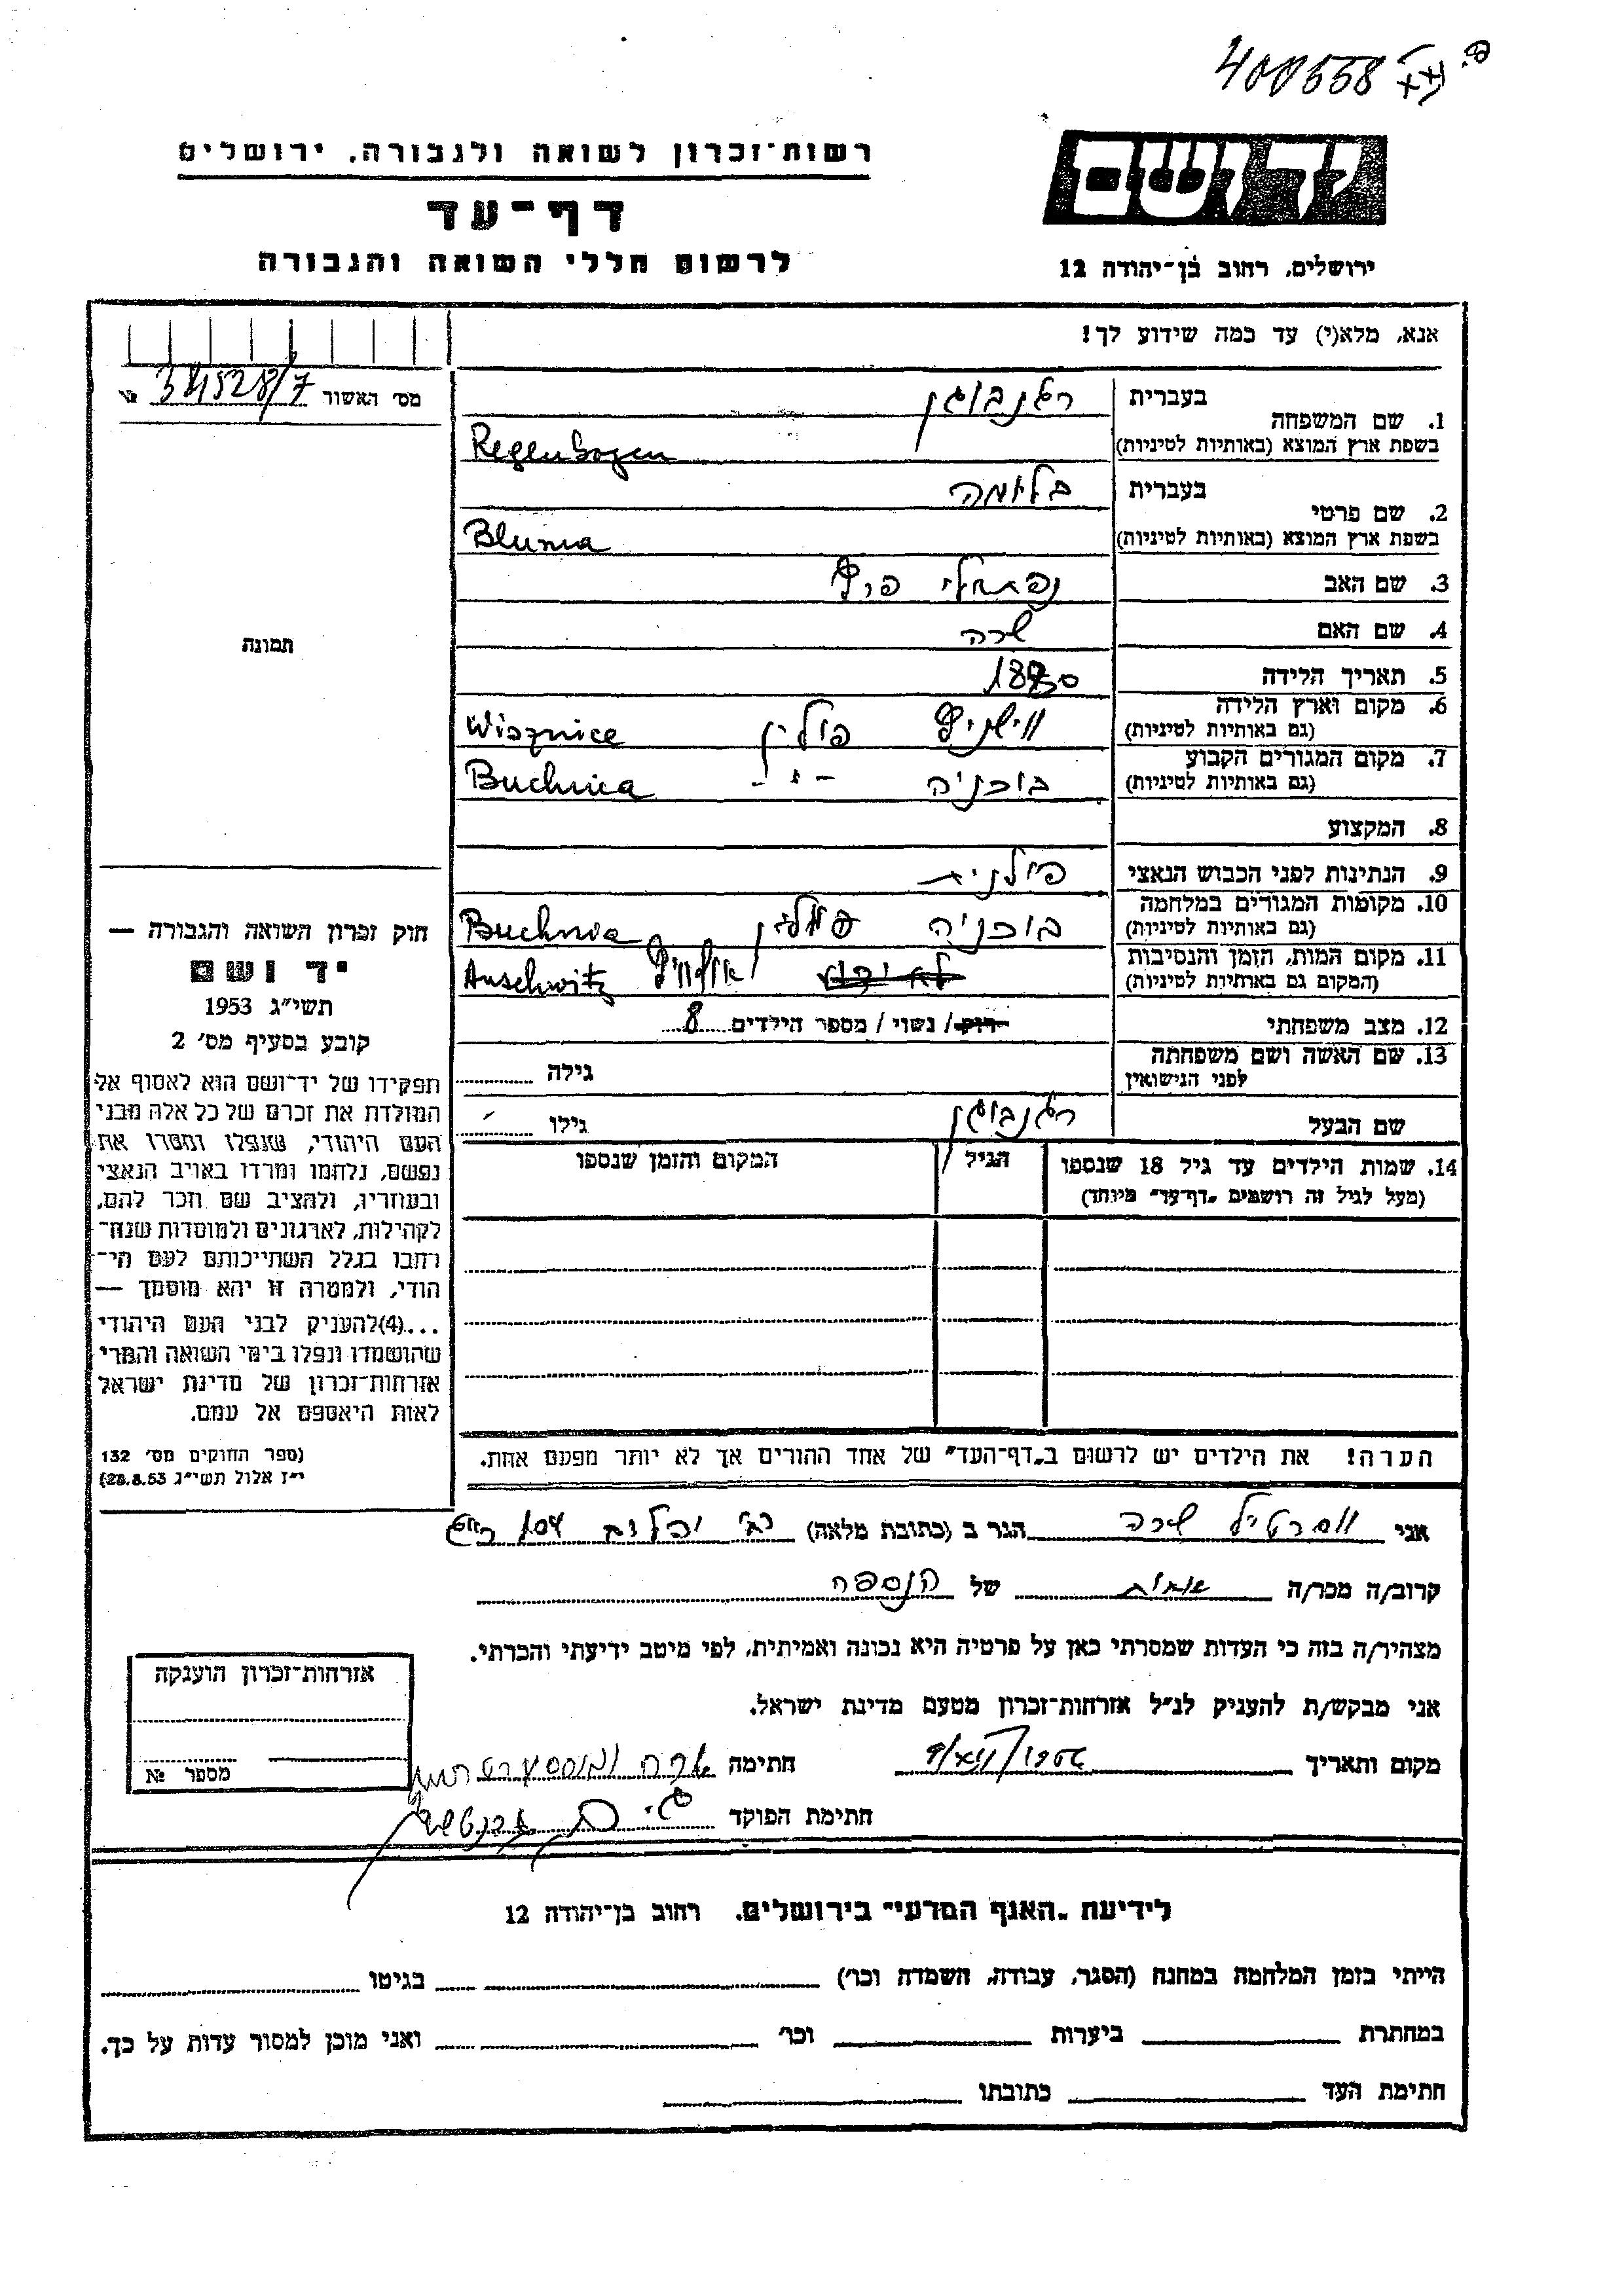 400558
ידושם
ירושלים, רחוב בן־יהודה 12
רשות־זכרון לשואה ולגבורה, ירושלים
דף־עד
לרשום חללי השואה והגבורה
אנא, מלא(י) עד כמה שידוע לך!
מס׳ האשור 341528/7 №
1. שם המשפחה בעברית רגנבוגן
בשפת ארץ המוצא (באותיות לטיניות) Regenbogen
2. שם פרטי בעברית בלומה
בשפת ארץ המוצא (באותיות לטיניות) Bluma
3. שם האב נפתלי
4. שם האם שרה
5. תאריך הלידה
6. מקום וארץ הלידה פולין Wisznice
(גם באותיות לטיניות)
7. מקום המגורים הקבוע בוכניה - " - Buchnia
(גם באותיות לטיניות)
8. המקצוע
9. הנתינות לפני הכבוש הנאצי פולנית
10. מקומות המגורים במלחמה בוכניה פולין Buchnia
(גם באותיות לטיניות)
11. מקום המות, הזמן והנסיבות Auschwitz
(המקום גם באותיות לטיניות)
12. מצב משפחתי רוק / נשוי / מספר הילדים 8
13. שם האשה ושם משפחתה גילה
לפני הנישואין
שם הבעל רגנבוגן גילו
14. שמות הילדים עד גיל 18 שנספו הגיל המקום והזמן שנספו
(מעל לגיל זה רושמים „דף־עד״ מיוחד)
הערה! את הילדים יש לרשום ב„דף־העד״ של אחד ההורים אך לא יותר מפעם אחת.
תמונה
חוק זכרון השואה והגבורה —
יד ושם
תשי״ג 1953
קובע בסעיף מס׳ 2
תפקידו של יד־ושם הוא לאסוף אל
המולדת את זכרם של כל אלה מבני
העם היהודי, שנפלו ומסרו את
נפשם, נלחמו ומרדו באויב הנאצי
ובעוזריו, ולהציב שם וזכר להם,
לקהילות, לארגונים ולמוסדות שנח־
רחבו בגלל השתייכותם לעם הי־
הודי, ולמטרה זו יהא מוסמך —
...(4)להעניק לבני העם היהודי
שהושמדו ונפלו בימי השואה והמרי
אזרחות־זכרון של מדינת ישראל
לאות היאספם אל עמם.
(ספר החוקים מס׳ 132
י״ז אלול תשי״ג 28.8.53)
אני שרה הגר ב (כתובת מלאה)
קרוב/ה מכר/ה אחות של הנספה
מצהיר/ה בזה כי העדות שמסרתי כאן על פרטיה היא נכונה ואמיתית, לפי מיטב ידיעתי והכרתי.
אני מבקש/ת להעניק לנ״ל אזרחות־זכרון מטעם מדינת ישראל.
מקום ותאריך חתימה
חתימת הפוקד
אזרחות־זכרון הוענקה
מספר №
לידיעת „האגף המדעי״ בירושלים, רחוב בן־יהודה 12
הייתי בזמן המלחמה במחנה (הסגר, עבודה, השמדה וכו׳) בגיטו
במחתרת ביערות וכו׳ ואני מוכן למסור עדות על כך.
חתימת העד כתובתו